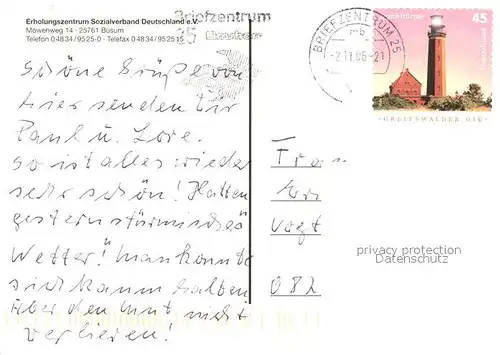 Erholungszentrum Sozialverband Deutschland e.V.
Möwenweg 14 - 25761 Büsum
Telefon 0 48 34 / 95 25-0 - Telefax 0 48 34 / 95 25 15
Briefzentrum
25
BRIEFZENTRUM 25
-2.11.05-21
45
Deutschland
GREIFSWALDER OIE
Schöne Grüße von
hier senden Dir
Paul u. Lore.
So ist alles wieder
sehr schön! Hatten
gestern stürmisches
Wetter! man konnte
sich kaum halten
Aber den Mut nicht
verlieren!
Vogt
082
privacy protection
Datenschutz